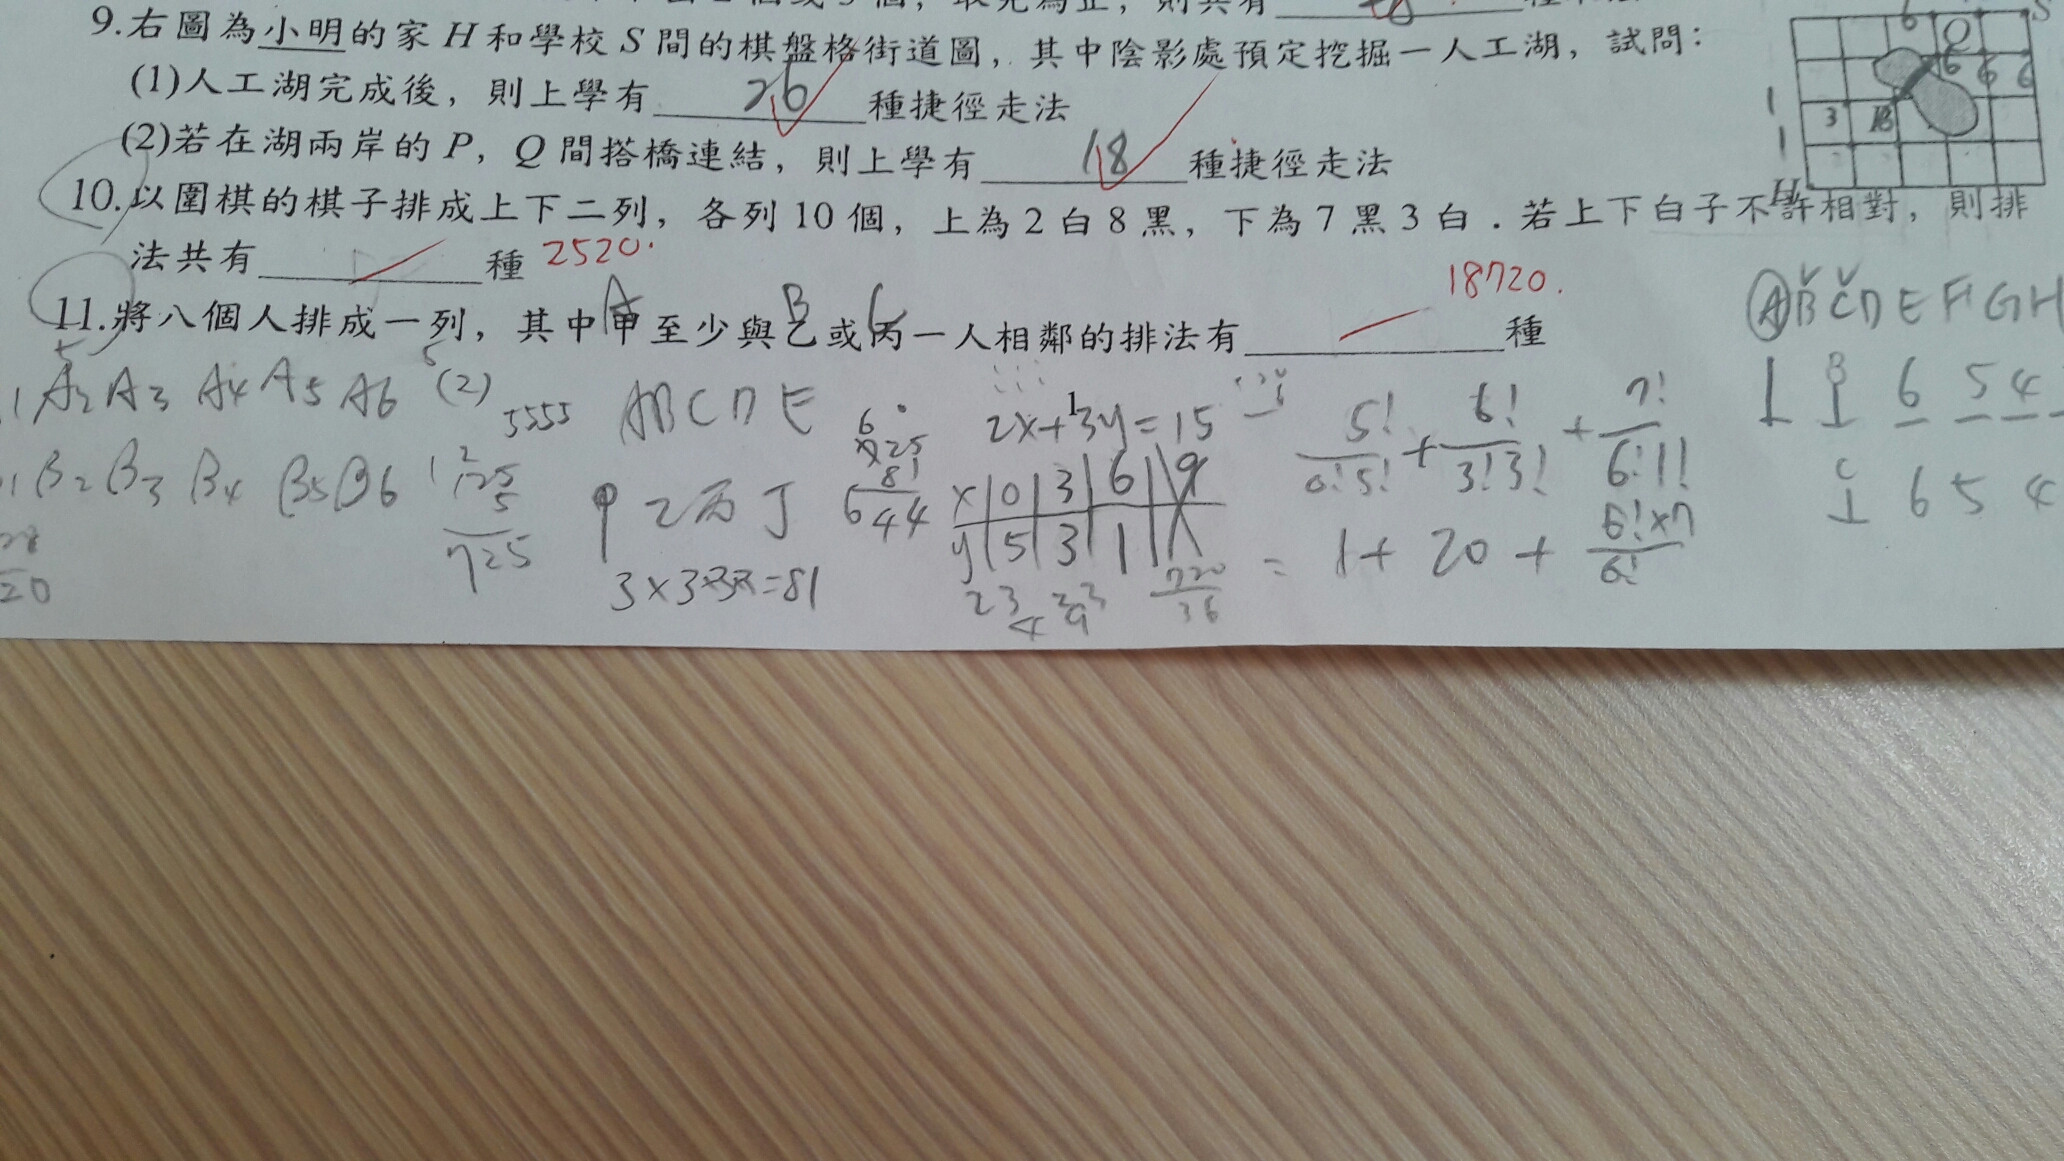 9.右圖為小明的家 H 和學校 S 間的棋盤格街道圖，其中陰影處預定挖掘一人工湖，試問：
(1)人工湖完成後，則上學有 26 種捷徑走法
(2)若在湖兩岸的 P，Q 間搭橋連結，則上學有 18 種捷徑走法
S
6 Q
6 6 6
1 3
1
H
10.以圍棋的棋子排成上下二列，各列 10 個，上為 2 白 8 黑，下為 7 黑 3 白．若上下白子不許相對，則排
法共有 種 2520.
18720.
A B C
11.將八個人排成一列，其中甲至少與乙或丙一人相鄰的排法有 種
A B C D E F G H
1 B 6 5 4
C 6 5 4
A2 A3 A4 A5 A6
B2 B3 B4 B5 B6
(2) 5555 ABCDE
125
5
725
甲乙丙丁
3×3×3×3=81
6
725
81
644
2x+3y=15
x 0 3 6 9
y 5 3 1
720
36
5!/0!5! + 6!/3!3! + 7!/6!1!
= 1+ 20 + 6!×7/6!
20